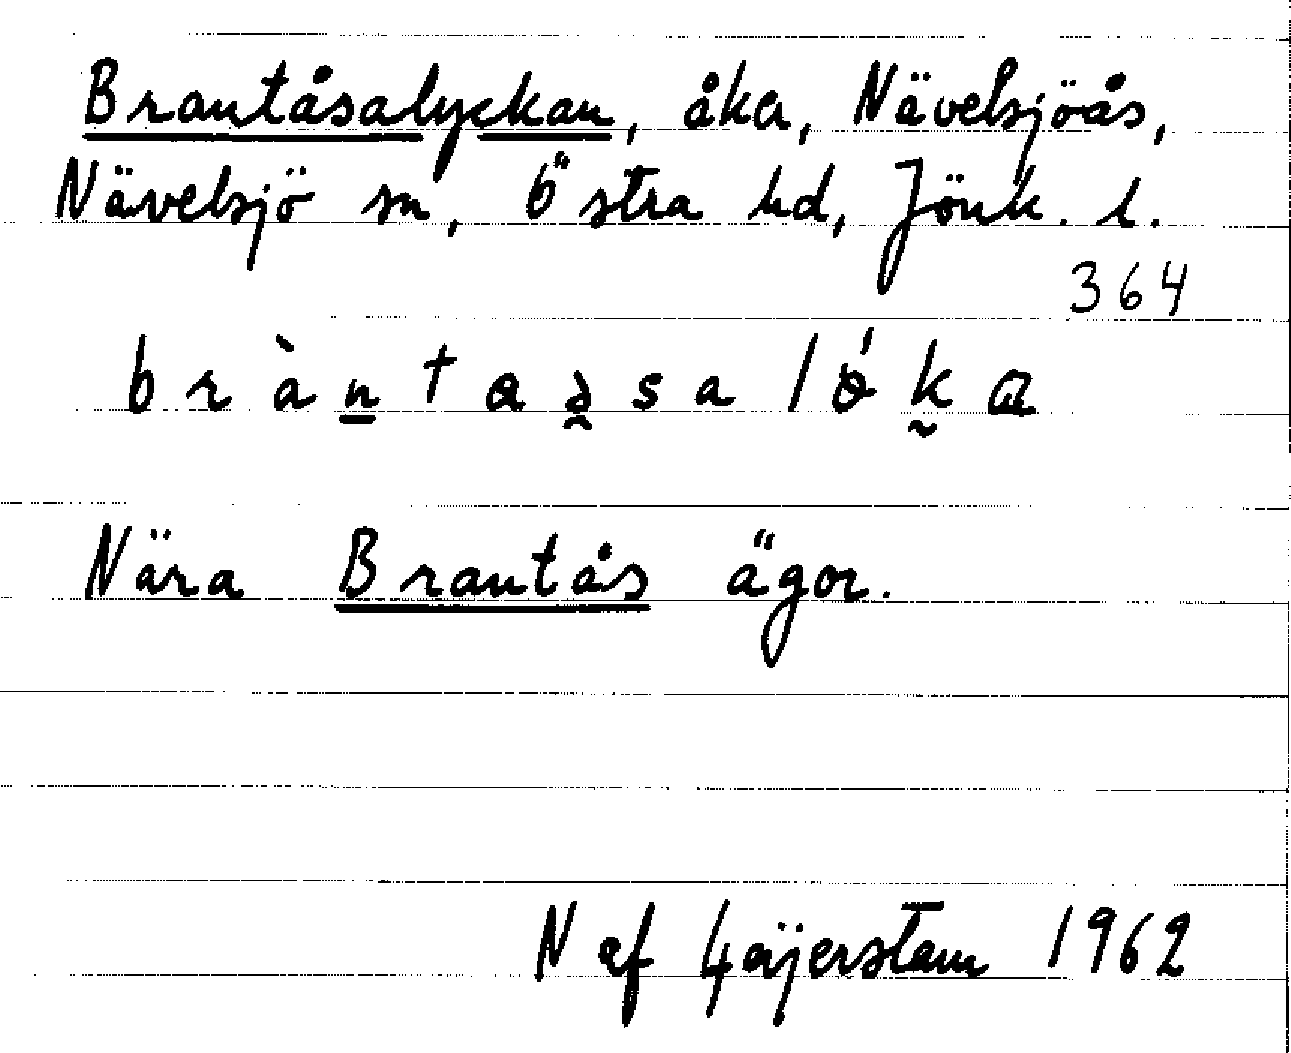 Brantåsalyckan, åker, Nävelsjöås,
Nävelsjö sn, Östra hd, Jönk. l.
364
Nära Brantås ägor.
N af Geijerstam 1962